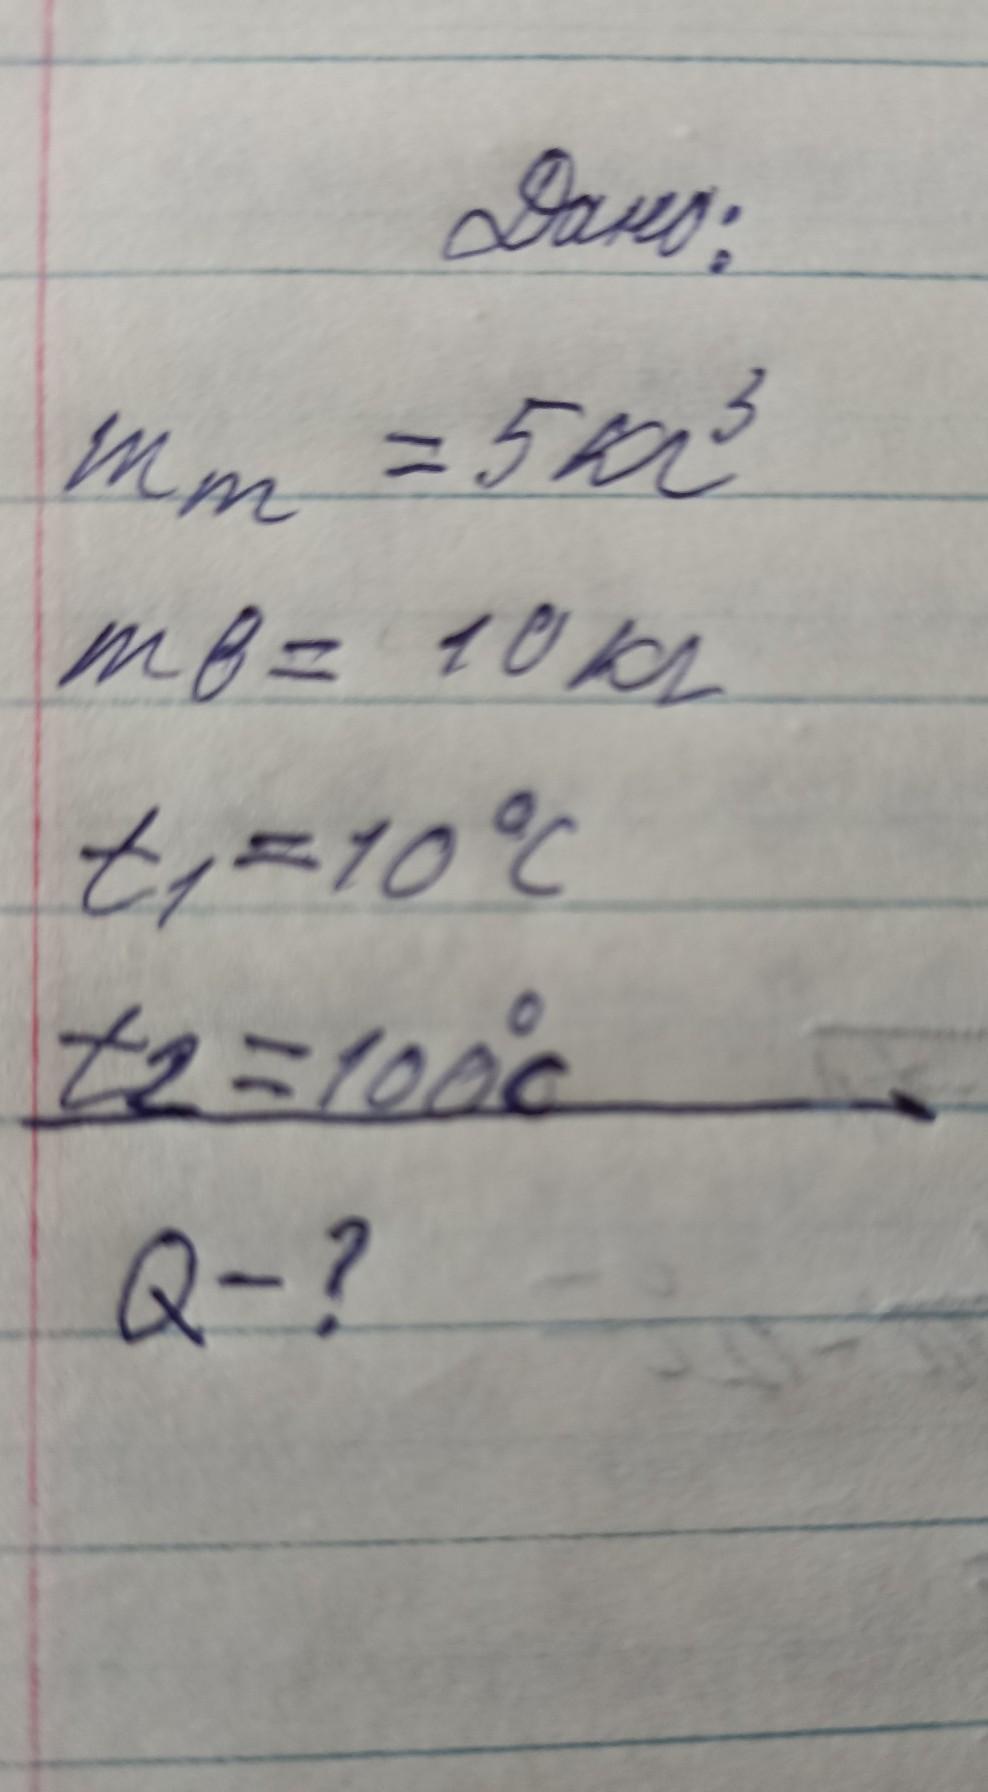 Дано:
mт = 5 кг³
mв = 10 кг
t₁ = 10 °C
t₂ = 100 °C
Q - ?